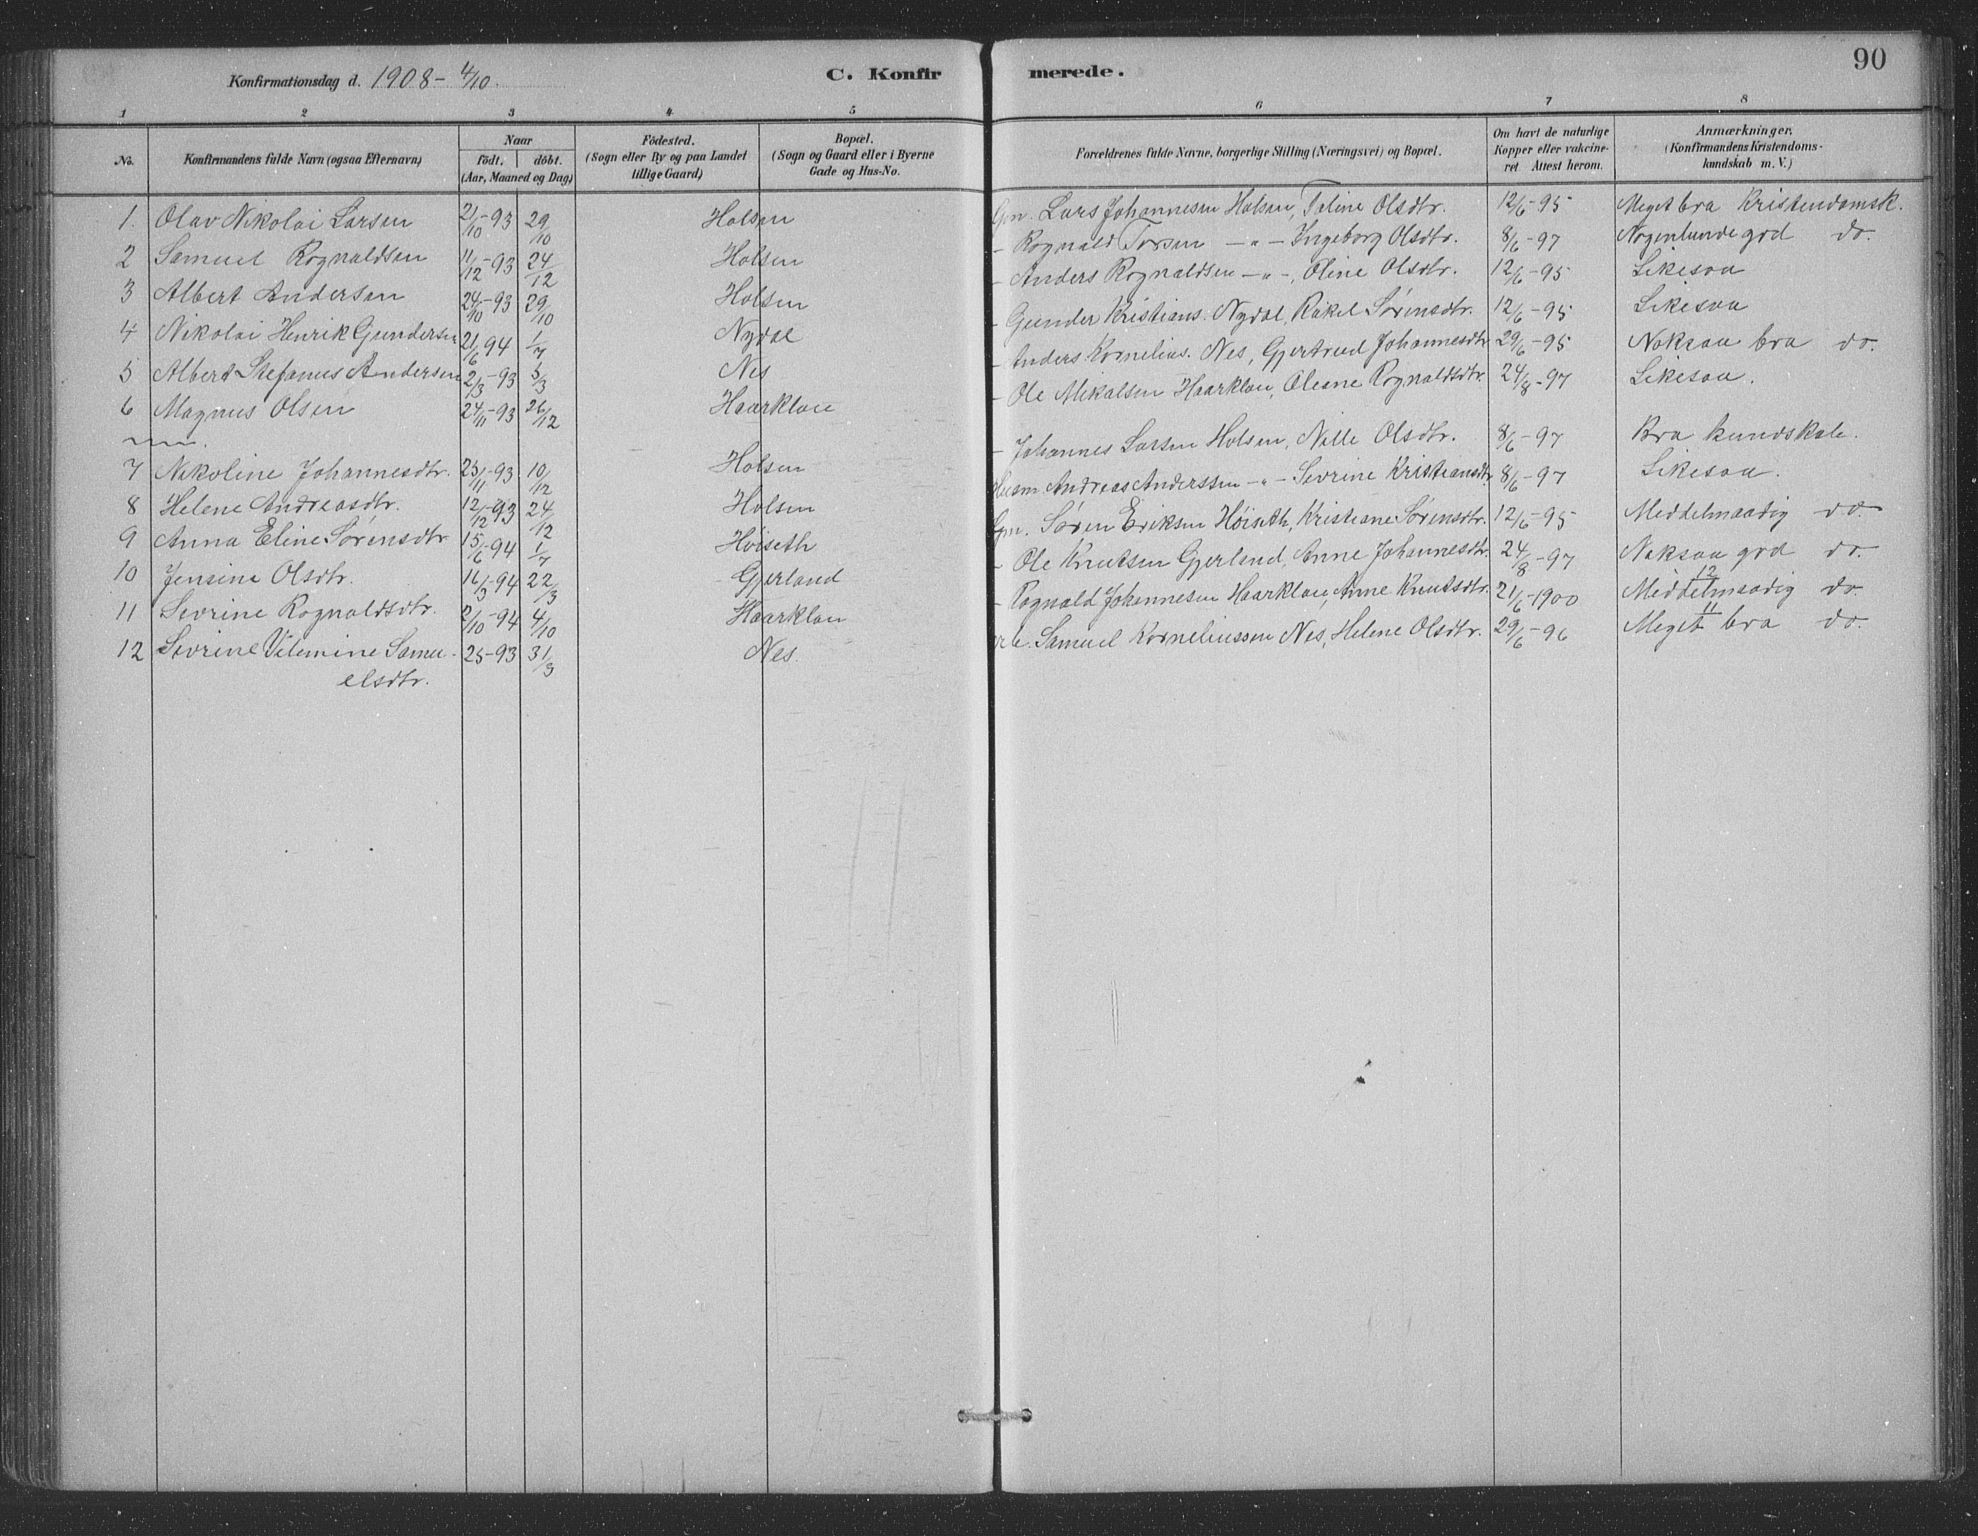 90
Konfirmationsdag d. 1908 - 4/10.
C. Konfirmerede.
1 2 3 4 5 6 7 8
No. Konfirmandens fulde Navn (ogsaa Efternavn) Naar födt, döbt. (Aar, Maaned og Dag) Födested. (Sogn eller By og paa Landet tillige Gaard) Bopæl. (Sogn og Gaard eller i Byerne Gade og Hus-No. Forældrenes fulde Navne, borgerlige Stilling (Næringsvei) og Bopæl. Om havt de naturlige Kopper eller vakcineret. Attest herom. Anmærkninger. (Konfirmandens Kristendomskundskab m. V.)
1. Olav Nikolai Larsen 21/10-93 29/10 Holsen Gm. Lars Johannesen Holsen, Taline Olsdtr. 12/6-95 Meget bra Kristendomsk.
2 Samuel Rognaldsen 11/12-93 24/12 Holsen - Rognald Torsen -"- Ingeborg Olsdtr. 8/6-97 Nogenlunde god do.
3 Albert Andersen 24/10-93 29/10 Holsen - Anders Rognaldsen -"-, Oline Olsdtr. 12/6-95 Likesaa
4 Nikolai Henrik Gundersen 21/6 94 1/7 Nydal - Gunder Kristians. Nydal, Rakel Sørensdtr. 12/6-95 Likesaa
5 Albert Stefanus Andersen 2/3-93 5/3 Nes - Anders Kornelius. Nes, Gjertrud Johannesdtr 29/6-95 Noksaa bra do.
6 Magnus Olsen 24/11-93 26/12 Haarklau - Ole Mikalsen Haarklau, Olesne Rognaldsdtr. 24/8-97 Likesaa.
7 Nikoline Johannesdtr. 25/11-93 10/12 Holsen - Johannes Larsen Holsen, Nille Olsdtr. 8/6-97 Bra kundskab.
8 Helene Andreasdtr. 12/12-93 24/12 Holsen Husm Andreas Anderssen -"- Sevrine Kristiansdtr 8/6-97 Likesaa.
9 Anna Eline Sørensdtr 15/6-94 1/7 Høiseth Gm. Søren Eriksen Høiseth, Kristiane Sørensdtr. 12/6-95 Meddelmaadig do.
10 Jensine Olsdtr. 11/3-94 22/3 Gjerland - Ole Knutsen Gjerland, Anne Johannesdtr. 24/8-97 Noksaa god do.
11 Sevrine Rognaldsdtr. 2/10-94 4/10 Haarklau - Rognald Johannesen Haarklau, Anne Knutsdtr. 21/6-1900 12 Meddelmaadig do.
12 Sevrine Vilemine Samuelsdtr. 25-93 31/3 Nes. Samuel Korneliussen Nes, Helene Olsdtr. 29/6-96 11 Meget bra do.